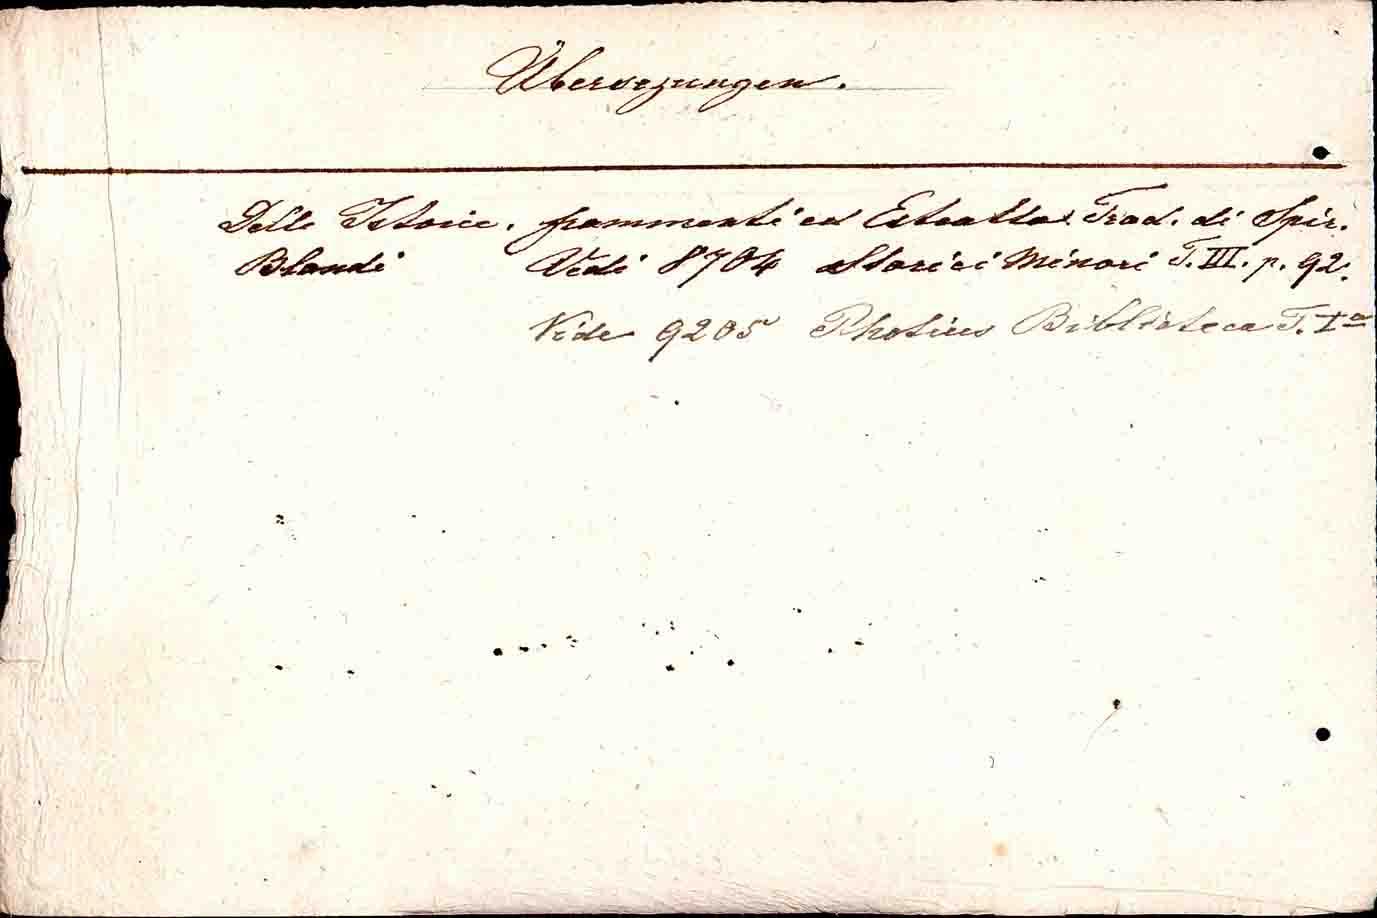 Übersezungen.
Delle Istorie. frammenti ed Estratto. Trad. di Spir.
Blandi Vedi 8704 Storici Minori T. III. p. 92.
Vide 9205 Photius Biblioteca T. I